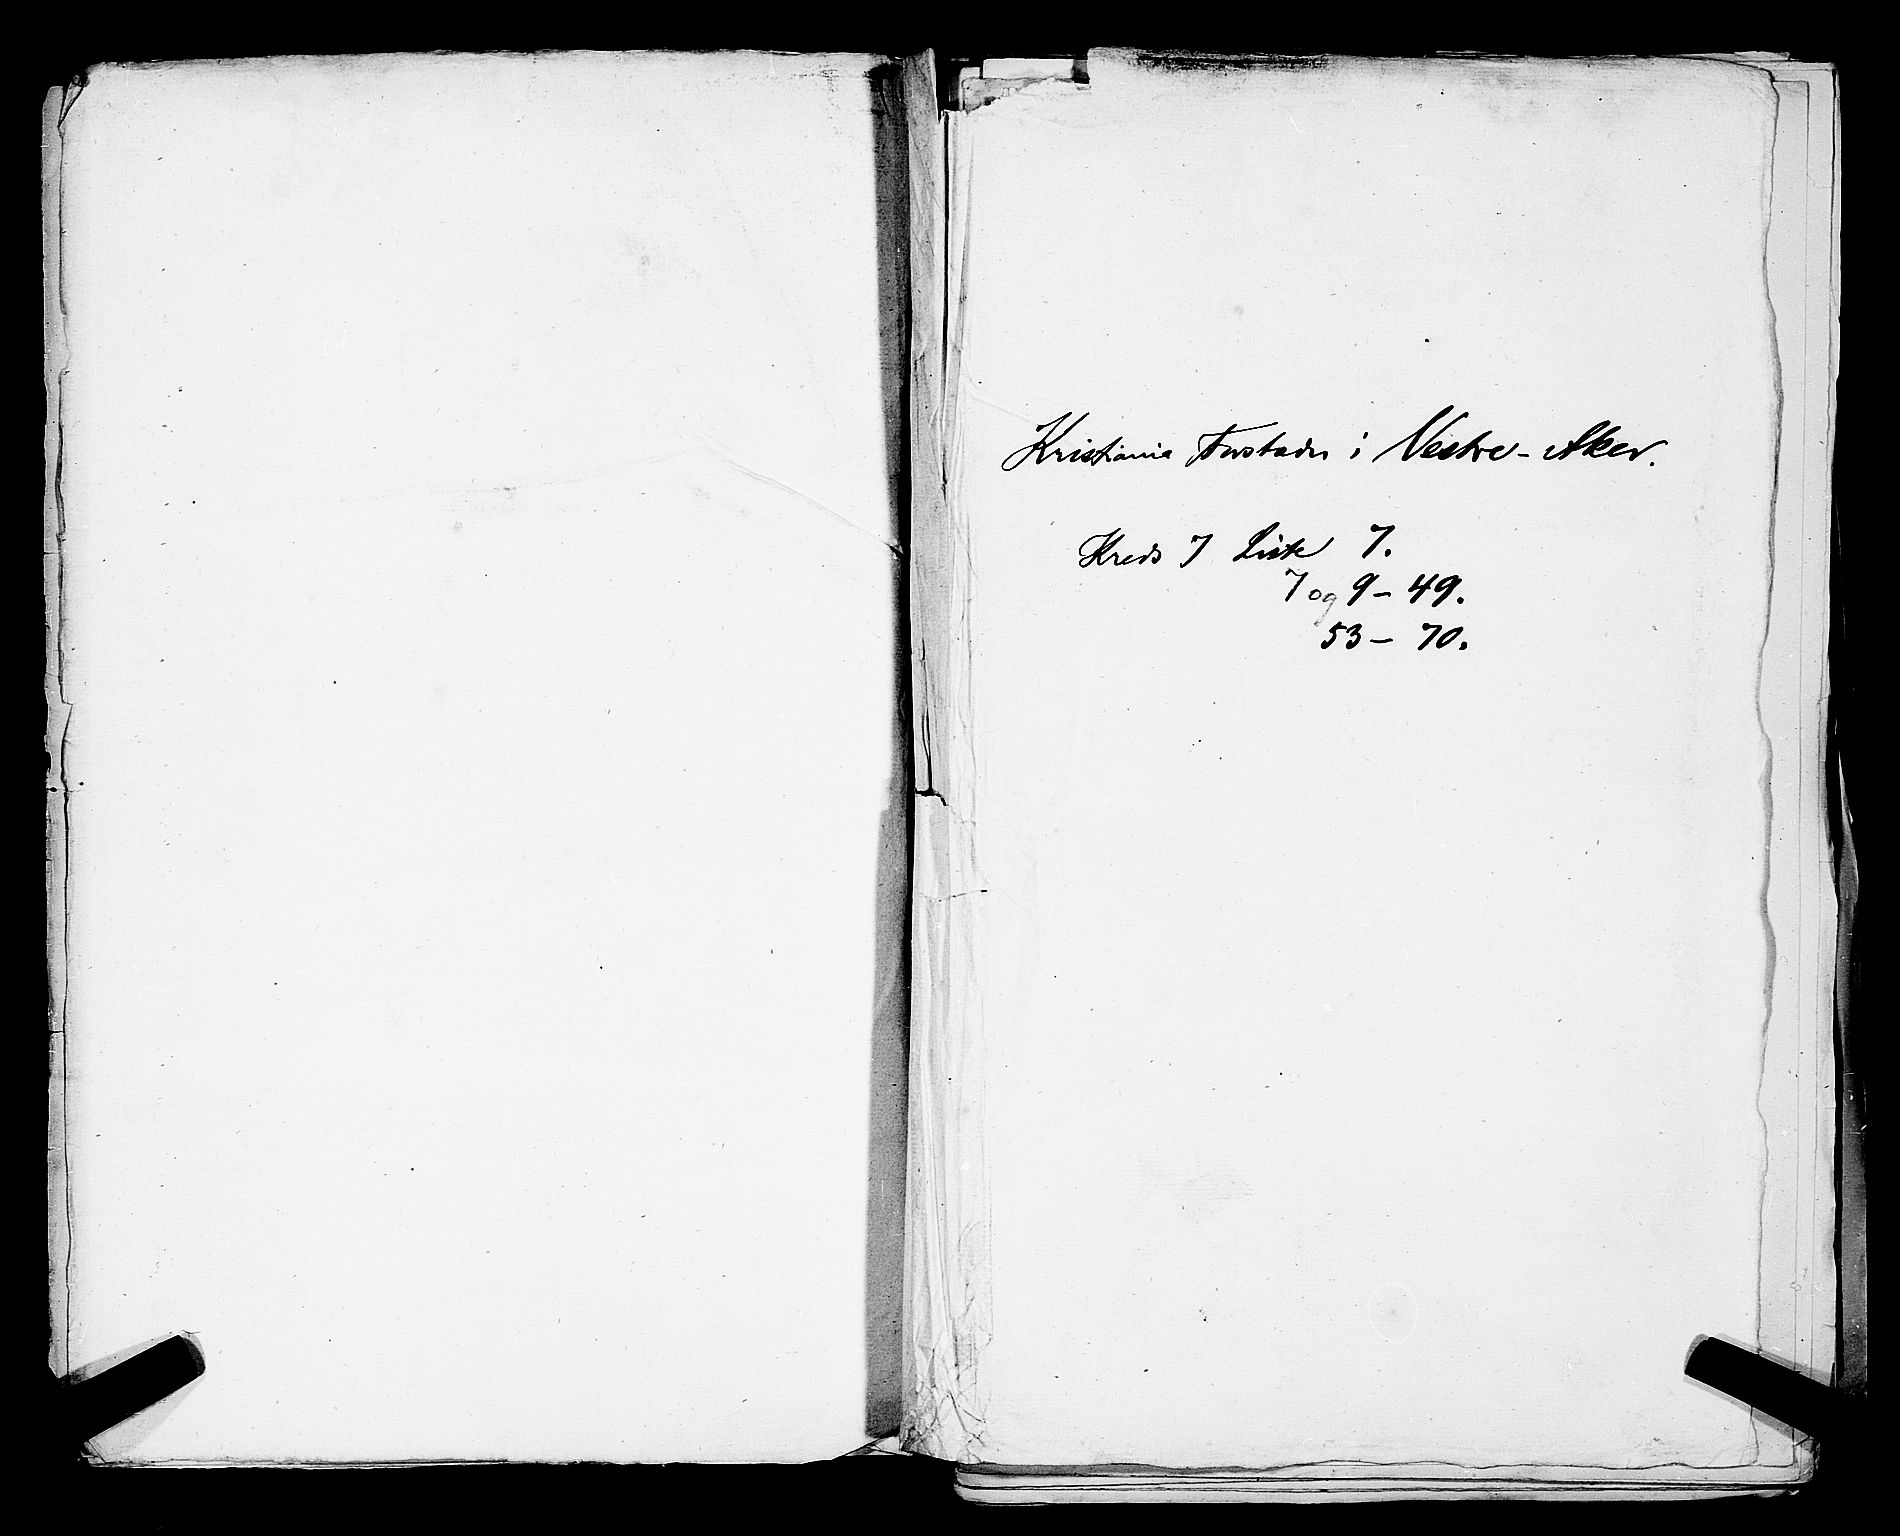 Kristiania Forstæder i Vestre-Aker.
Kreds 7 Liste 7.
7 og 9 – 49.
53 – 70.